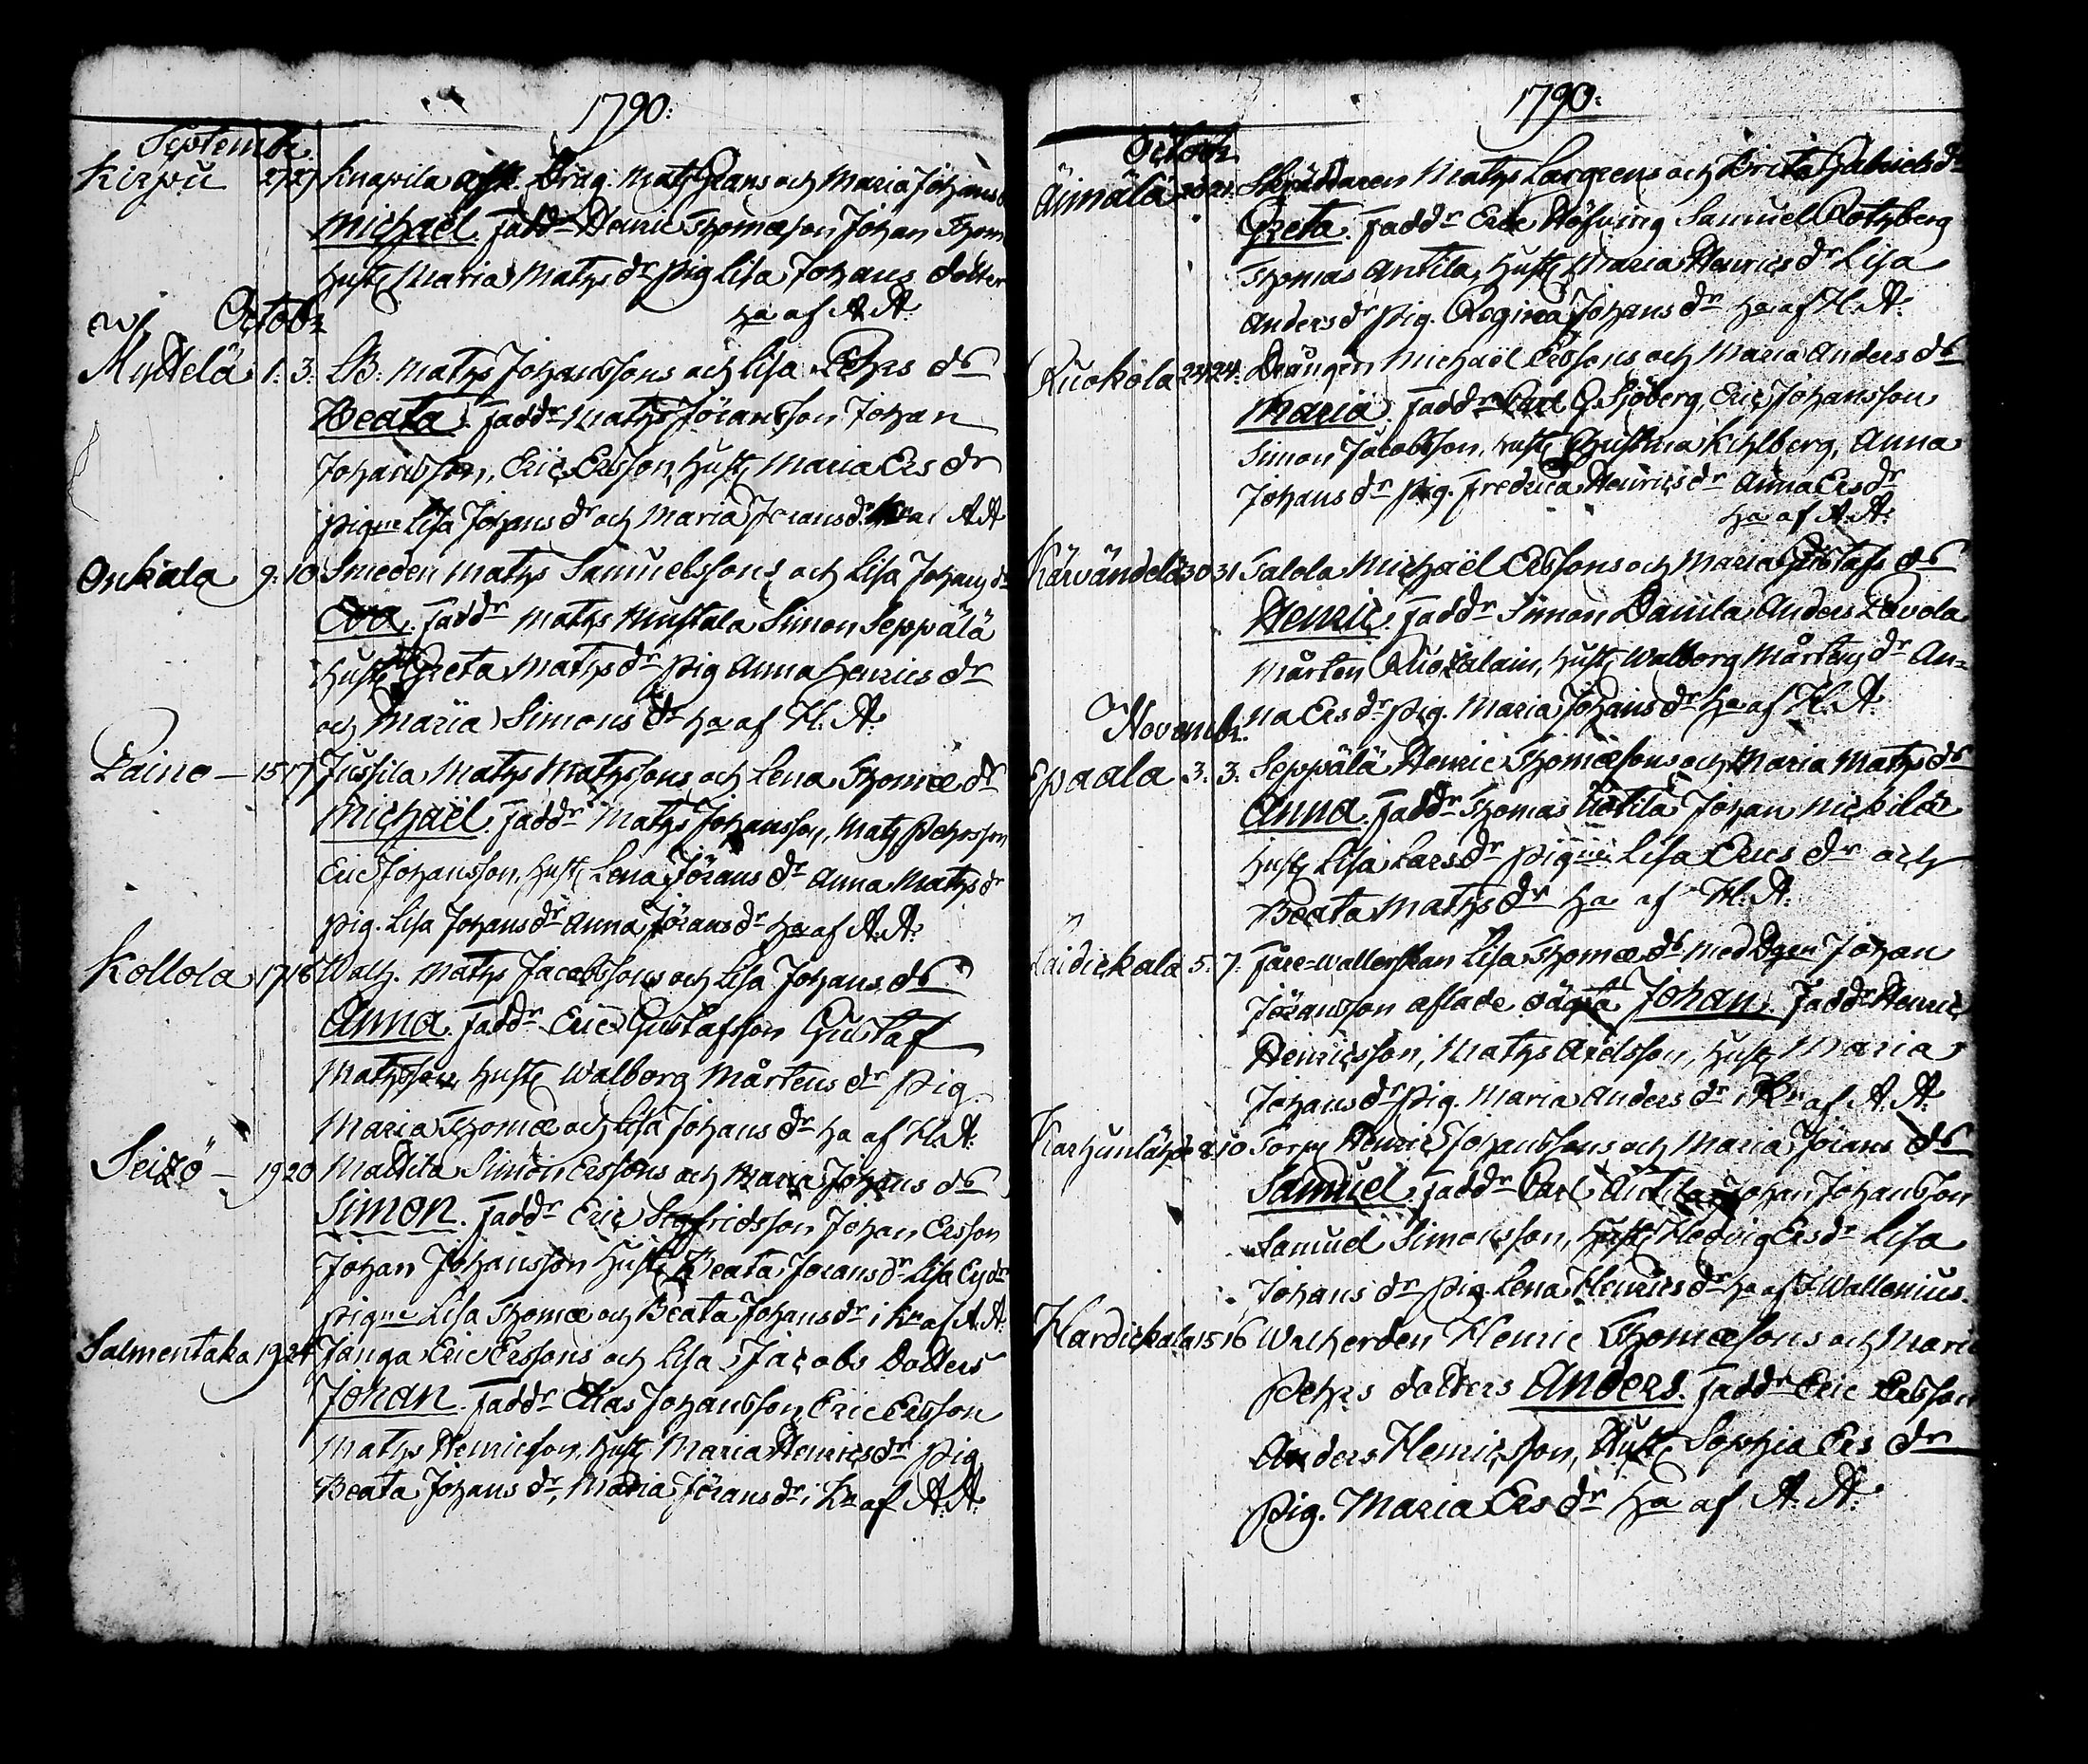 1790:
Septembr.
Kirpu 27 27 Knapila afsk. Drag. Matts Grans och Maria Johans
Michaël. Fadd:r Henric Thomæson Johan Thom
Hustr Maria Matts dr pig Lisa Johans dotter
ha af A. A:
Octobr
Myttelä 1: 3: LB. Matts Johanssons och Lisa Pehrs ds
Beata. Faddr Matts Jöransson Johan
Johansson, Eric Ersson, Hustr Maria Ers dr
pigne Lisa Johans dr och Maria Jorans dr A A
Onkala 9: 10 Smeden Matts Samuelssons och Lisa Johans ds
Eva. Faddr Matts Mustala Simon Seppälä
Hustr Greta Matts dr pig Anna Henrics dr
och Maria Simons dr ha af H. A:
Paino — 15 17 Jussila Matts Mattssons och Lena Thomæ dr
Michaël. Faddr Matts Johansson, Matts Pehrsson
Eric Johansson, Hustr Lena Jörans dr Anna Matts dr
pig. Lisa Johans dr Anna Jörans dr ha af A. A:
Kollola 17 18 Walh. Matts Jacobssons och Lisa Johans ds
Anna. Faddr Eric Gustafsson Gustaf
Mattsson, Hustr Walborg Mårtens dr pig
Maria Thomæ och Lisa Johans dr ha af H. A:
Seizö — 19 20 Mattila Simon Erssons och Maria Johans ds
Simon. Faddr Eric Sigfridsson Johan Ersson
Johan Johansson Hustr Beata Jorans dr Lisa Ers dr
pigne Lisa Thomæ och Beata Johans dr i Kn af A. A:
Salmentaka 19 24 Janga Eric Erssons och Lisa Jacobs Dotters
Johan. Faddr Elias Johansson, Eric Ersson
Matts Henricson, Hustr Maria Henrics dr pig
Beata Johans dr, Maria Jörans dr i Kn af A. A:
1790:
Octobr.
Äimälä 20 21. Skräddaren Matts Largrens och Brita Gabriels dr
Greta. Faddr Eric Höfving Samuel Rotzberg
Thomas Antila, Hustr Maria Henrics dr Lisa
Anders dr pig. Regina Johans dr ha af H. A:
Ruokola 24 24. Drängen Michaël Erssons och Maria Anders ds
Maria. Faddr Carl G. Sjöberg, Eric Johansson
Simon Jacobsson, Hustr Christina Kihlberg, Anna
Johans dr pig. Fredrica Henrics dr Anna Ers dr
ha af A. A:
Kärvändelä 30 31 Talola Michaël Erssons och Maria Gustafs ds
Henric. Faddr Simon Danila Anders Pavola
Mårten Ruokalain, Hustr Walborg Mårtens dr An=
na Ers dr pig. Maria Johans dr ha af H. A:
Novembr.
Epaala 3. 3. Seppälä Henric Thomæsons och Maria Matts ds
Anna. Faddr Thomas Hotila Johan Nickilä
Hustr Lisa Lars dr pigne Lisa Erics dr och
Beata Matts dr ha af H. A:
Laidickala 5. 7. Fåre=wallerskan Lisa Thomæ ds med Dgen Johan
Jöransson aflade oägta Johan. Faddr Henric
Henricsson, Matts Axelsson, Hustr Maria
Johans dr pig. Maria Anders dr i Kn af A. A:
Karhunlähde 8 10 Torp: Henric Johanssons och Maria Jörans ds
Samuel. Faddr Carl Antila Johan Johansson
Samuel Simonsson, Hustr Hedvig Ers dr Lisa
Johans dr pig. Lena Henrics dr ha af J. Wallenius.
Hardickala 15 16 Walherden Henric Thomæsons och Mari
Pehrs dotters Anders. Faddr Eric Ersson
Anders Henricsson, Hustr Sophia Ers dr
pig. Maria Ers dr ha af A. A: